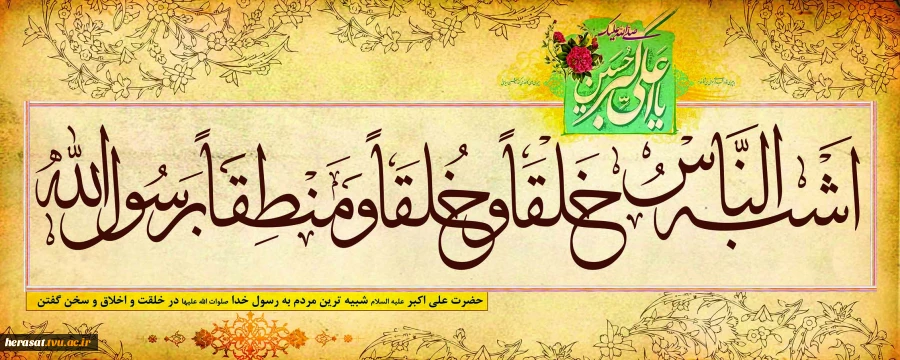 صلی الله علیک
یا علی اکبر حسین
اشبه النَّاسْ خَلْقاً وخُلقَاً ومَنْطِقاً برَسُول الله
حضرت علی اکبر علیه السلام شبیه ترین مردم به رسول خدا صلوات الله علیها در خلقت و اخلاق و سخن گفتن
herasat.tvu.ac.ir